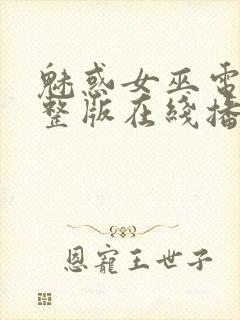 魅惑女巫電
整版在綫播
恩寵王世子